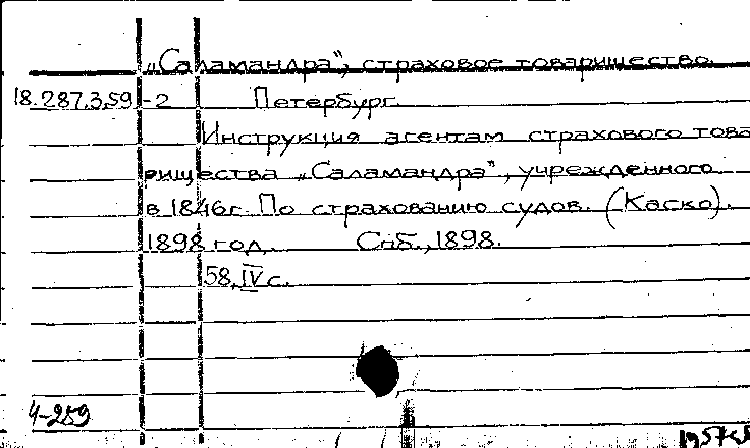 „Саламандра", страховое товарищество.
18.287.3.59-2 Петербург.
Инструкция агентам страхового това
рищества „Саламандра", учрежденного
в 1846г. По страхованию судов. (Каско).
1898 год. Спб., 1898.
58, IV с.
4-259